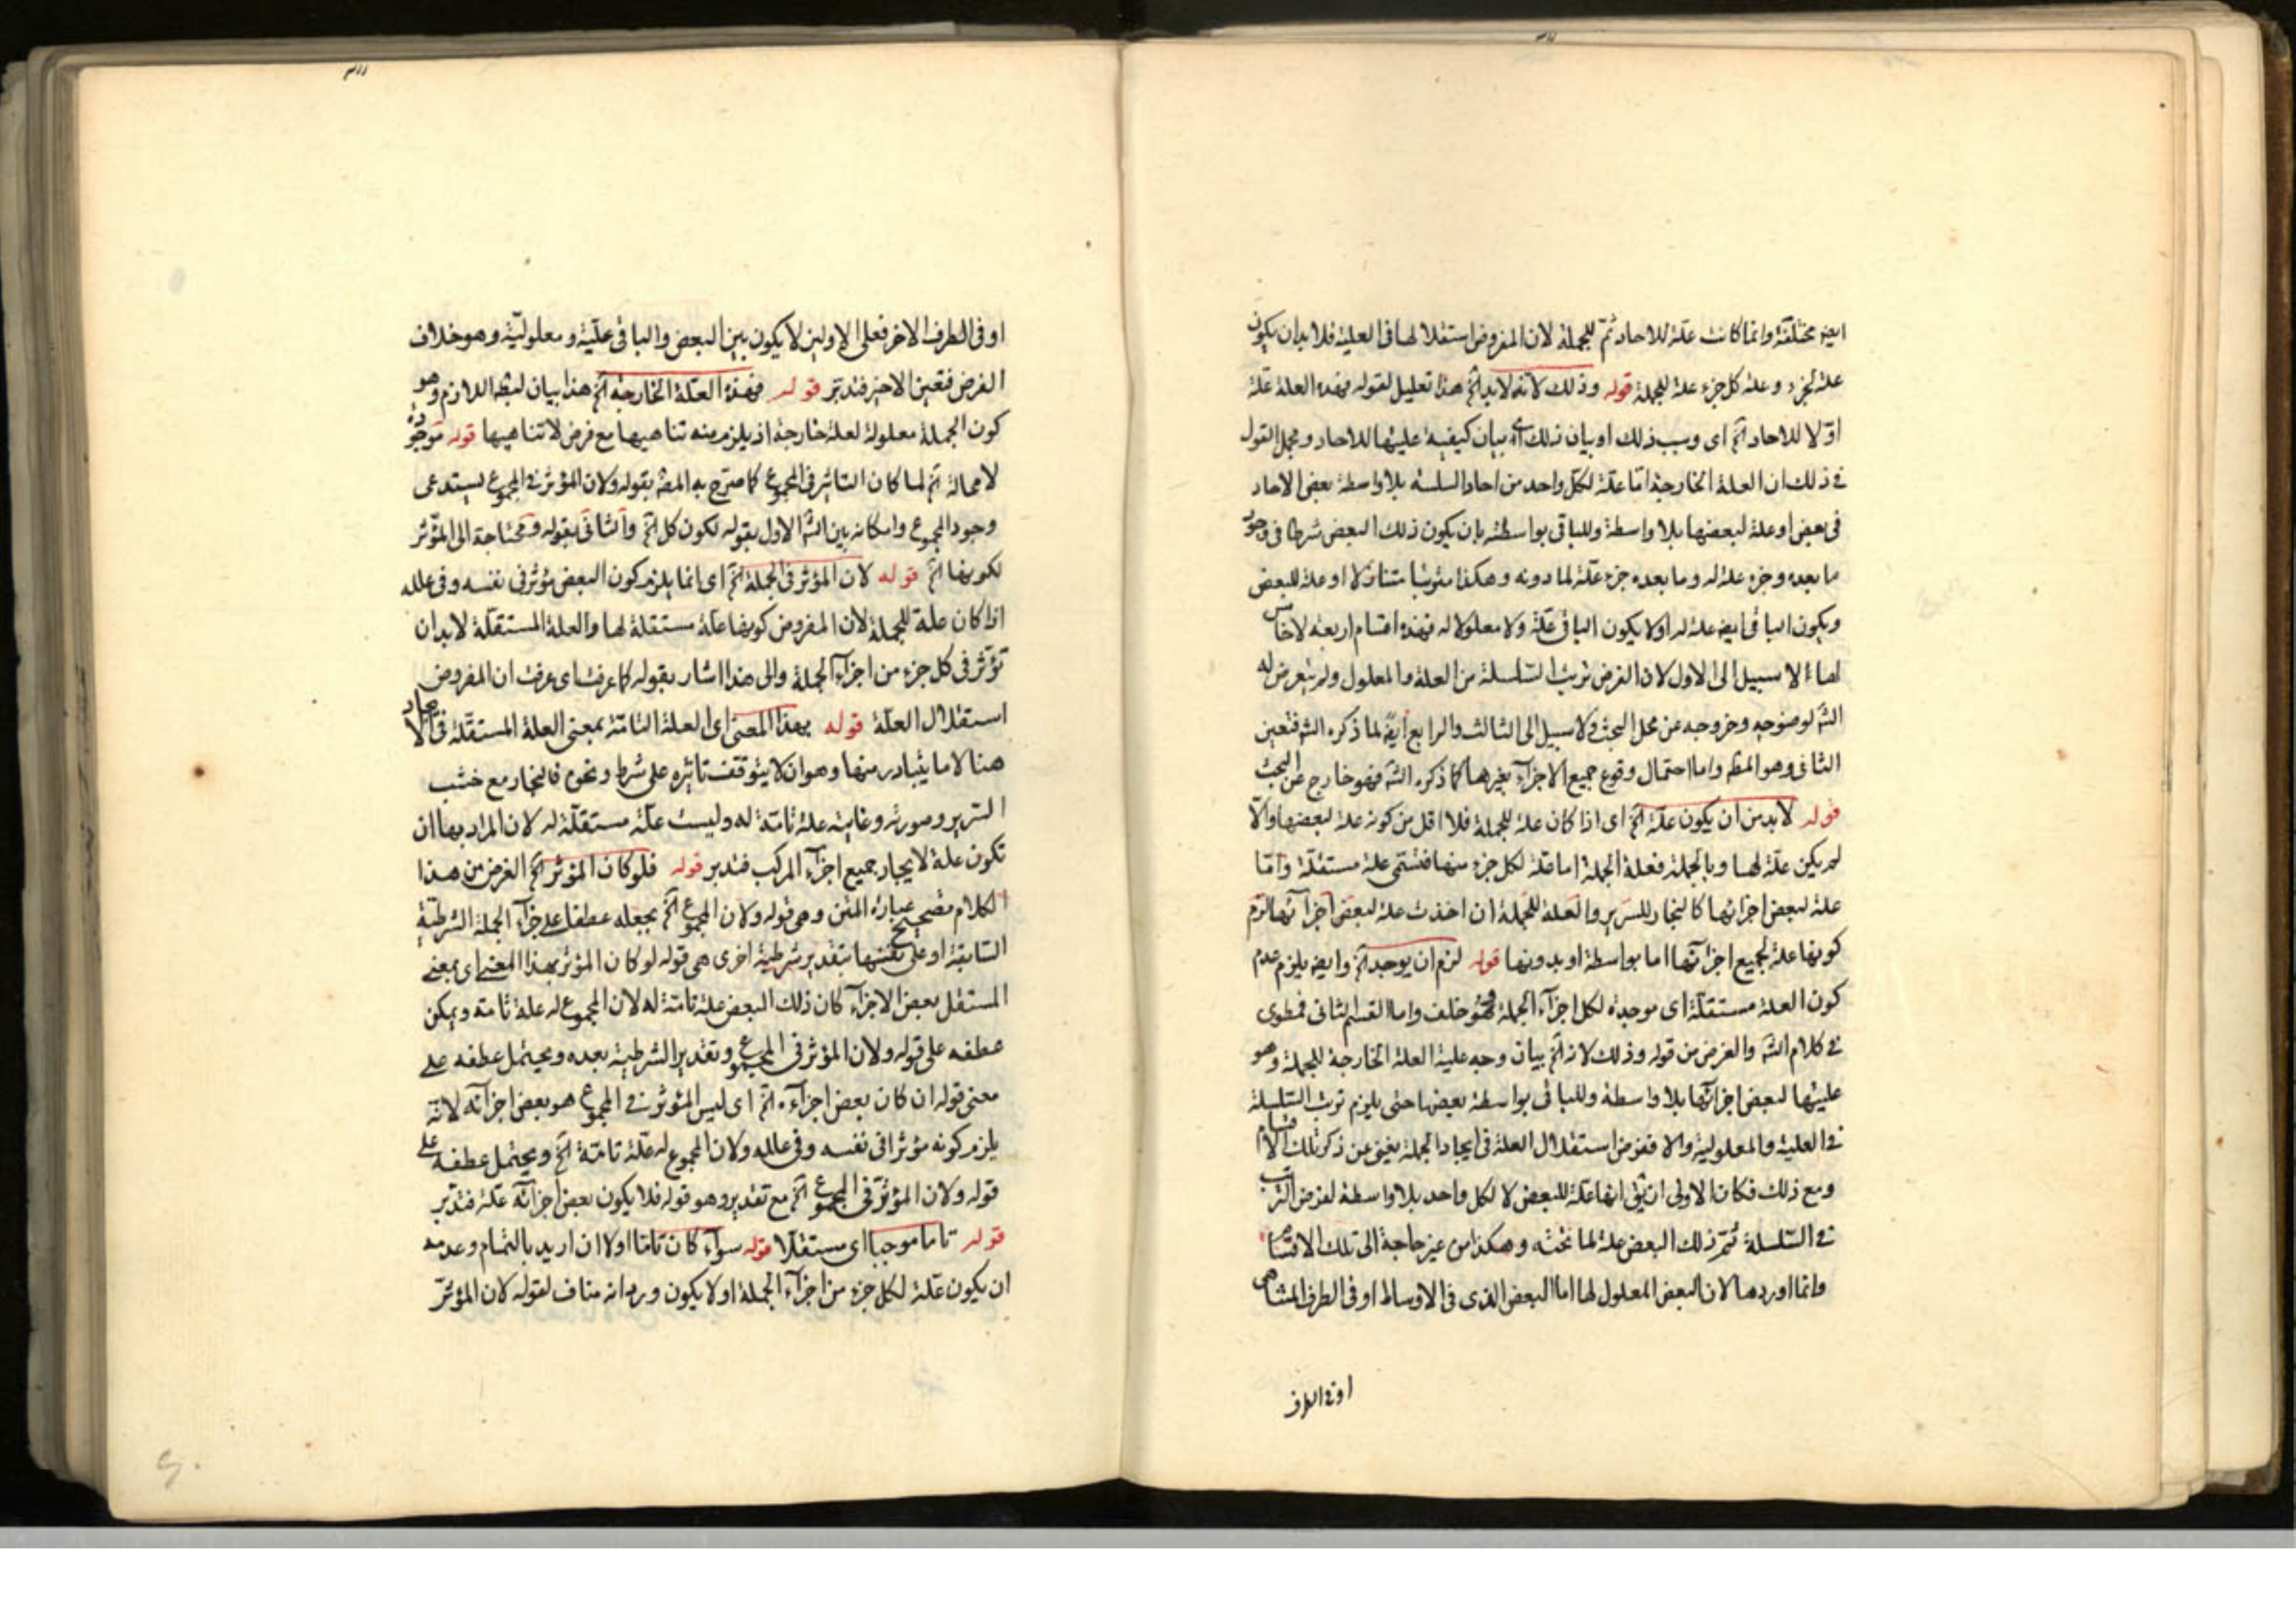 ايضا مختلفة وانما كانت علة للاحاد ثم للجملة لان المفروض استقلالها فى العلية فلا بد ان يكون
علة لجزء وعلة كل جزء علة للجملة قوله وذلك لانه لابد الخ هذا تعليل لقوله فهذه العلة علة
اولا للاحاد الخ اى وسبب ذلك او بيان ذلك اى بيان كيفية عليتها للاحاد ومجمل القول
فى ذلك ان العلة الخارجة اما علة لكل واحد من احاد السلسلة بلا واسطة بعض الاحاد
فى بعض او علة لبعضها بلا واسطة وللباقى بواسطته بان يكون ذلك البعض شرطا فى وجود
ما بعده وجزء علة له وما بعده جزء علة لما دونه وهكذا متنازلا او علة للبعض
ويكون الباقى ايضا علة له اولا يكون الباقى علة ولا معلولا له فهذه اقسام اربعة لا خامس
لها لا سبيل الى الاول لان الفرض ترتب السلسلة من العلة والمعلول ولم يتعرض له
الش لوضوحه وخروجه عن محل البحث ولا سبيل الى الثالث والرابع ايضا لما ذكره الش فتعين
الثانى وهو المط واما احتمال وقوع جميع الاجزاء بغيرها كما ذكره الش فهو خارج عن البحث
قوله لابد من ان يكون علة الخ اى اذا كان علة للجملة فلا اقل من كونه علة لبعضها والا
لم يكن علة لها وبالجملة فعلة الجملة اما علة لكل جزء منها فتسمى علة مستقلة واما
علة لبعض اجزائها كالنجار للسرير والعلة للجملة ان اخذت علة لبعض اجزائها لزم
كونها علة لجميع اجزائها اما بواسطة او بدونها قوله لزم ان يوجد الخ وايضا يلزم عدم
كون العلة مستقلة اى موجدة لكل اجزاء الجملة وهو خلف واما القسم الثانى فمطوى
فى كلام الش والغرض من قوله وذلك لانه الخ بيان وجه علية العلة الخارجة للجملة وهو
عليتها لبعض اجزائها بلا واسطة وللباقى بواسطة بعضها حتى يلزم ترتب السلسلة
فى العلية والمعلولية والا ففرض استقلال العلة فى ايجاد الجملة يغنى عن ذكر تلك الاقسام
ومع ذلك فكان الاولى ان يق انها علة للبعض لا لكل واحد بلا واسطة لفرض الترتب
فى السلسلة ثم ذلك البعض علة لما تحته وهكذا من غير حاجة الى تلك الاقسام
وانما اوردها لان البعض المعلول لها اما البعض الذى فى الاوساط او فى الطرف المتناهى
او فى الطرف
او فى الطرف الاخر فعلى الاولين لا يكون بين البعض والباقى علية ومعلولية وهو خلاف
الفرض فتعين الاخير فتدبر قوله فهذه العلة الخارجة الخ هذا بيان لبط اللازم وهو
كون الجملة معلولة لعلة خارجة اذ يلزم منه تناهيها مع فرض لا تناهيها قوله موجودة
لا محالة الخ لما كان التاثير فى المجموع كما صرح به المص بقوله ولان المؤثر فى المجموع يستدعى
وجود المجموع وامكانه بين الش الاول بقوله لكون كل الخ والثانى بقوله ومحتاجة الى المؤثر
لكونها الخ قوله لان المؤثر فى الجملة الخ اى انما يلزم كون البعض مؤثر فى نفسه وفى علله
اذا كان علة للجملة لان المفروض كونها علة مستقلة لها والعلة المستقلة لابد ان
تؤثر فى كل جزء من اجزاء الجملة والى هذا اشار بقوله كما عرفت اى عرفت ان المفروض
استقلال العلة قوله بهذا المعنى اى العلة التامة بمعنى العلة المستقلة فى الايجاد
هنا لا ما يتبادر منها وهو ان لا يتوقف تاثيره على شرط ونحوه فالنجار مع خشب
السرير وصورته وغايته علة تامة له وليست علة مستقلة له لان المراد بها ان
تكون علة لايجاد جميع اجزاء المركب فتدبر قوله فلو كان المؤثر الخ الغرض من هذا
الكلام تصحيح عبارة المتن وهى قوله ولان المجموع الخ بجعله عطفا على جزاء الجملة الشرطية
السابقة او على نفسها بتقدير شرطية اخرى هى قوله لو كان المؤثر بهذا المعنى اى بمعنى
المستقل بعض الاجزاء كان ذلك البعض علة تامة له لان المجموع له علة تامة ويمكن
عطفه على قوله ولان المؤثر فى المجموع وتقدير الشرطية بعده ويحتمل عطفه على
معنى قوله ان كان بعض اجزاءه الخ اى ليس المؤثر فى المجموع هو بعض اجزائه لانه
يلزم كونه مؤثرا فى نفسه وفى علله ولان المجموع له علة تامة الخ ويحتمل عطفه على
قوله ولان المؤثر فى المجموع الخ مع تقدير وهو قوله فلا يكون بعض اجزائه علة فتدبر
قوله تاما موجبا اى مستقلا قوله سواء كان تاما اولا ان اريد بالتمام وعدمه
ان يكون علة لكل جزء من اجزاء الجملة او لا يكون ورد انه مناف لقوله لان المؤثر